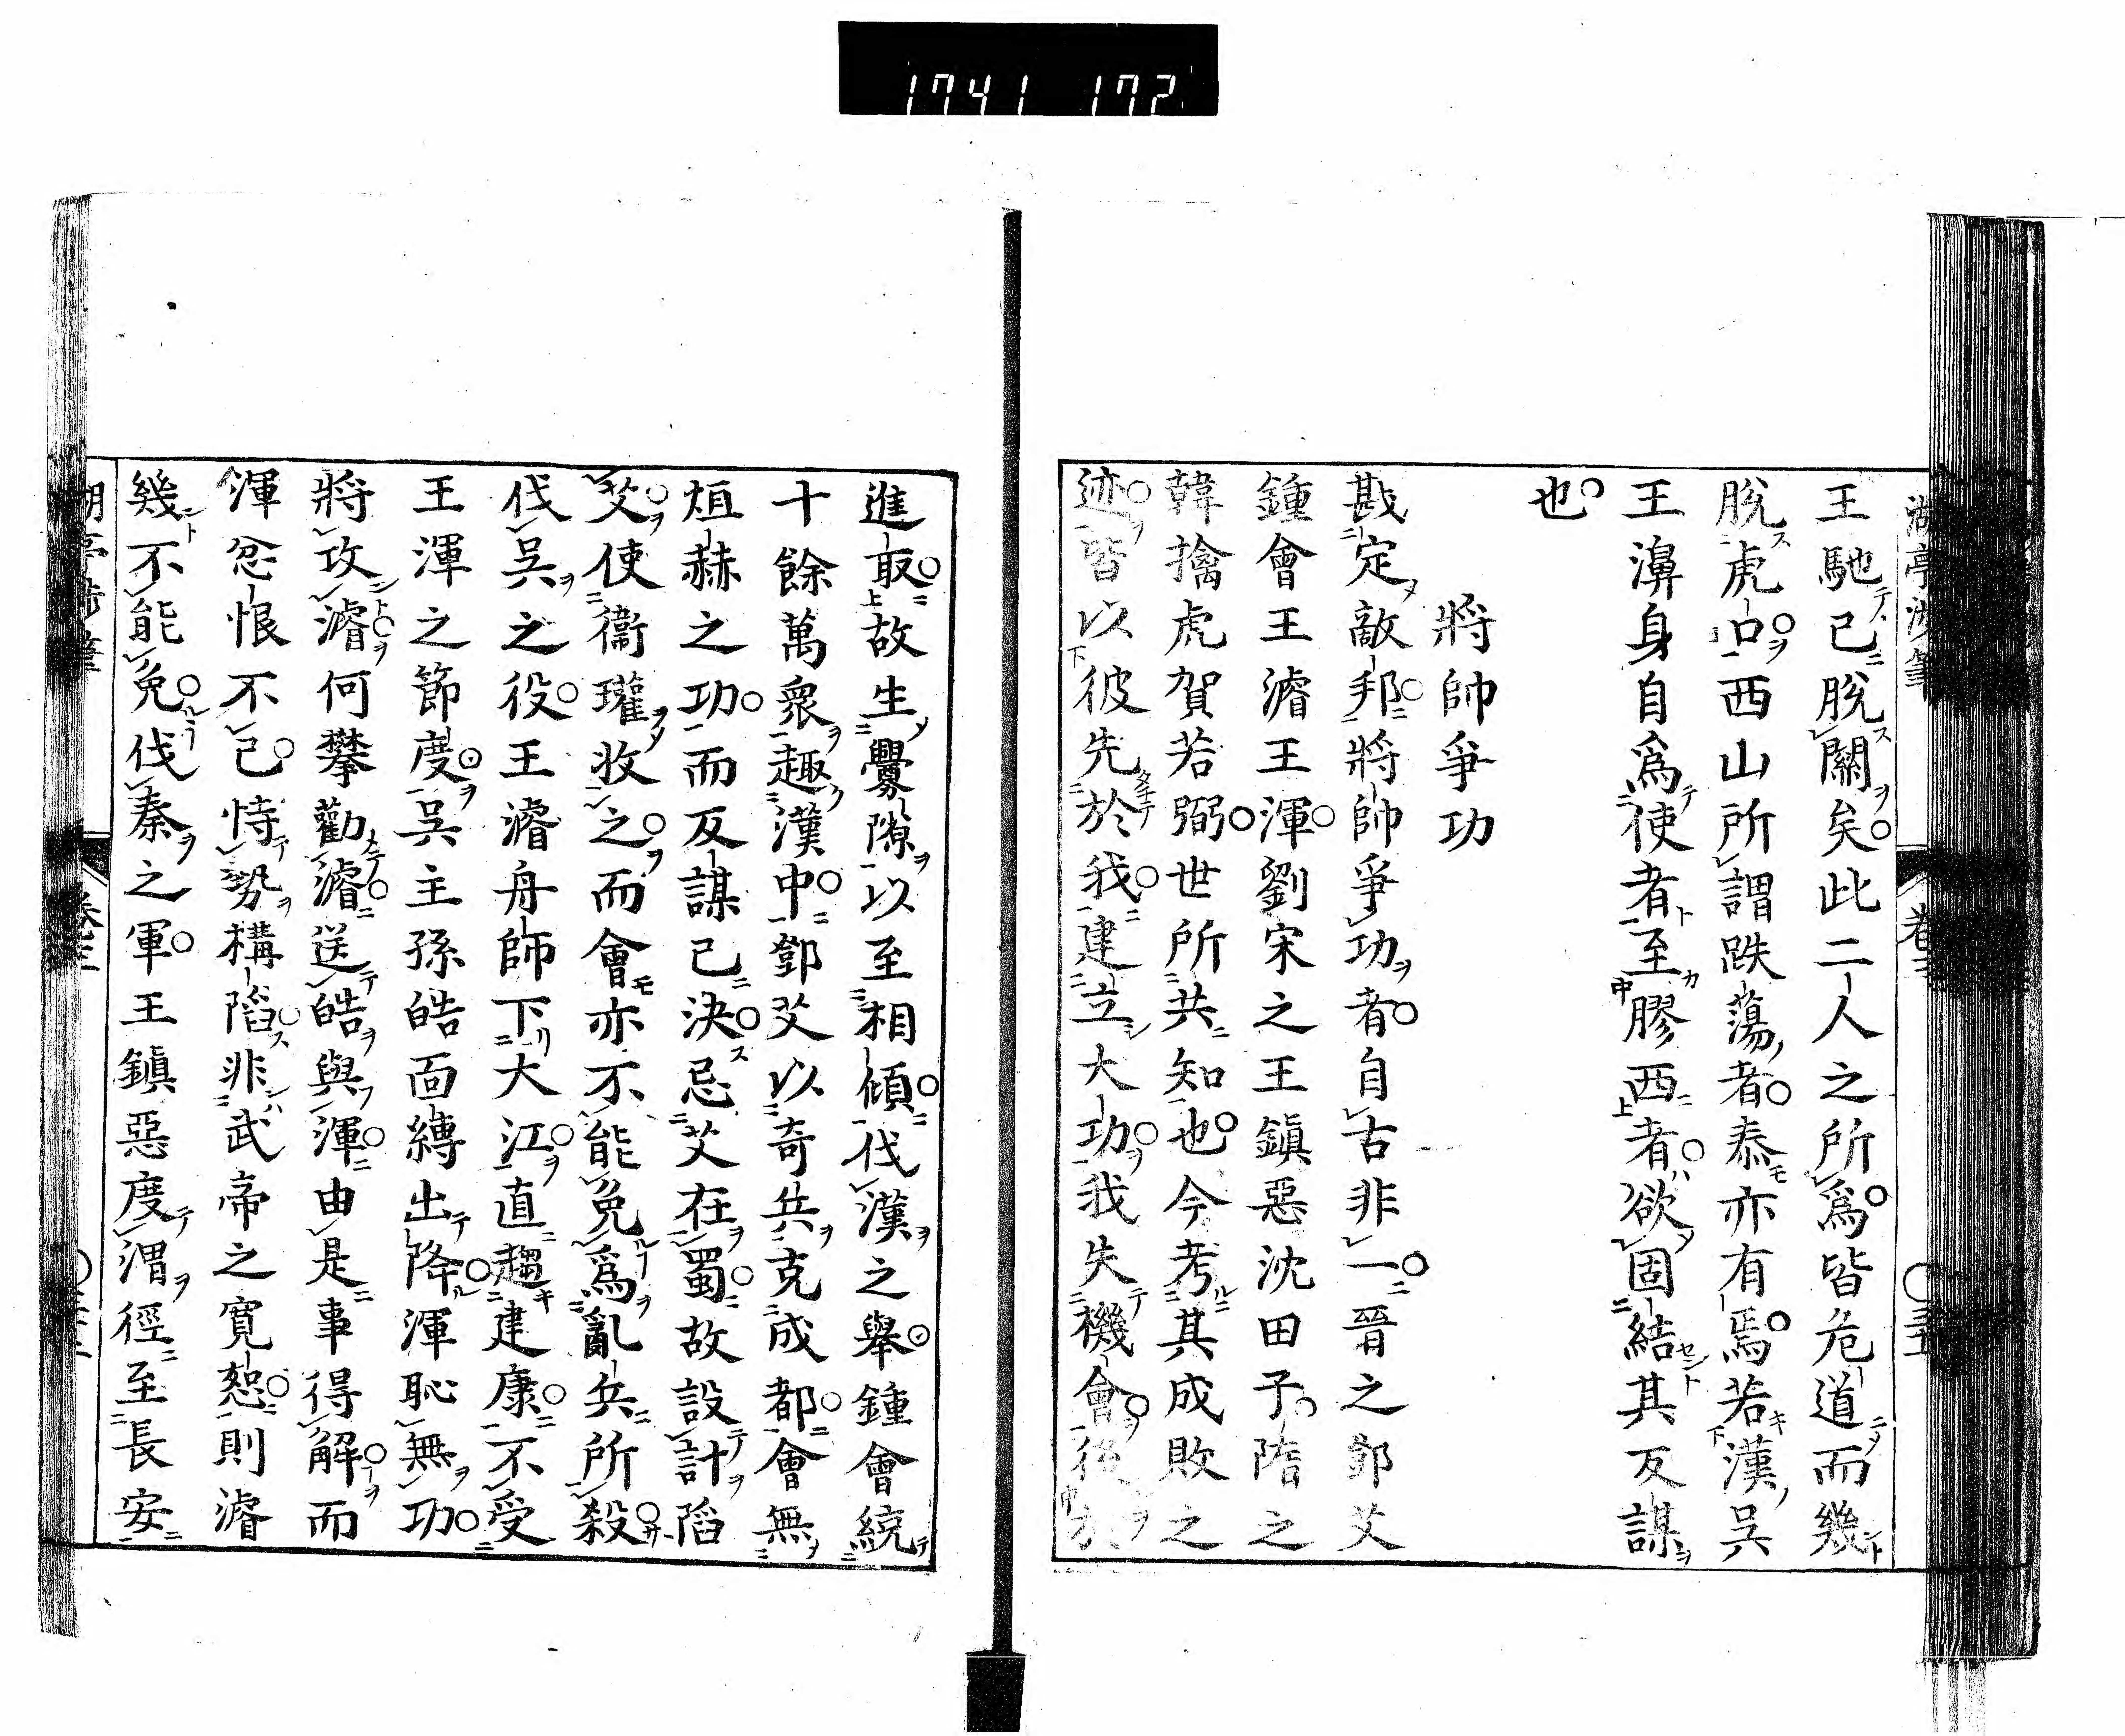 1741 172
王馳已脫關矣此二人之所爲皆危道而幾
脫虎口西山所謂跌蕩者泰亦有焉若漢吳
王濞身自爲使者至膠西者欲固結其反謀
也
將帥爭功
戡定敵邦將帥爭功者自古非一晉之鄧艾
鍾會王濬王渾劉宋之王鎮惡沈田子隋之
韓擒虎賀若弼世所共知也今考其成敗之
迹皆以彼先於我建立大功我失機會後於
進取故生釁隙以至相傾伐漢之舉鍾會統
十餘萬衆趣漢中鄧艾以奇兵克成都會無
烜赫之功而反謀已決忌艾在蜀故設計陷
艾使衞瓘收之而會亦不能免爲亂兵所殺
伐吳之役王濬舟師下大江直趨建康不受
王渾之節度吳主孫皓面縛出降渾恥無功
將攻濬何攀勸濬送皓與渾由是事得解而
渾忿恨不已恃勢構陷非武帝之寬恕則濬
幾不能免伐秦之軍王鎮惡度渭徑至長安